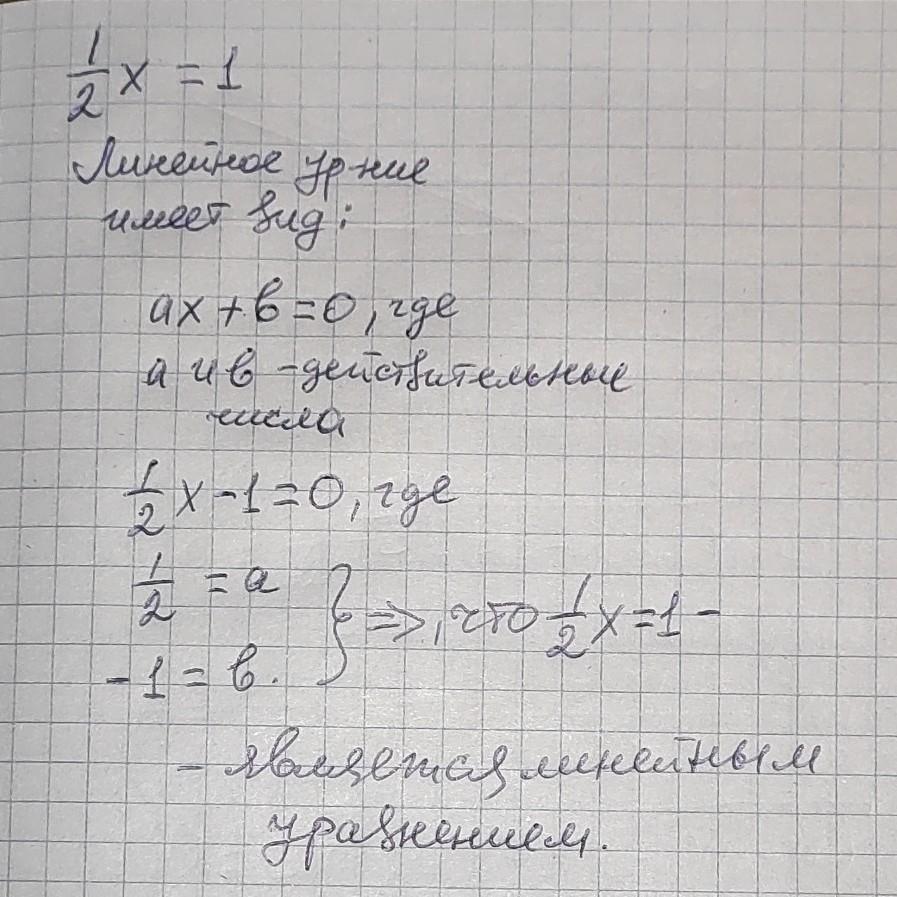 1/2 x = 1
Линейное ур-ние
имеет вид:
ax + b = 0, где
a и b - действительные
числа
1/2 x - 1 = 0, где
1/2 = a
-1 = b. } ⇒, что 1/2 x = 1 -
- является линейным
уравнением.